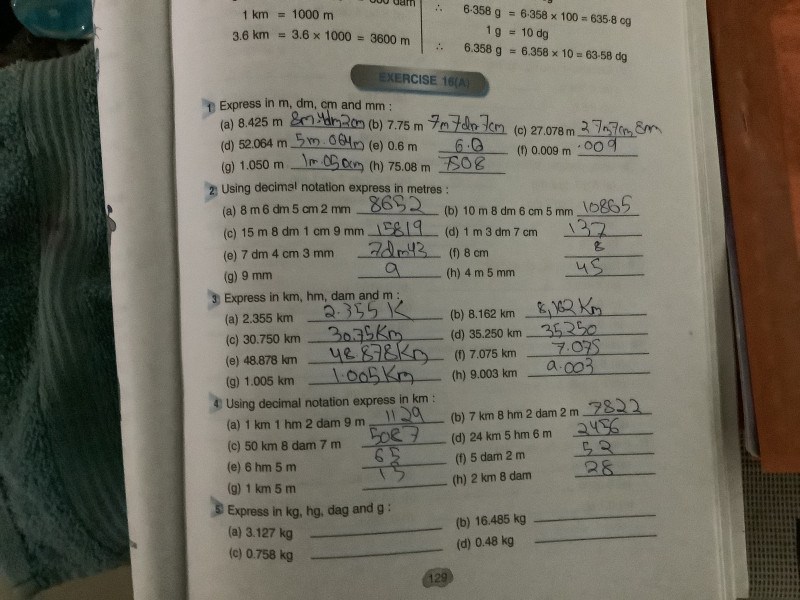 1 km = 1000 m
3.6 km = 3.6 × 1000 = 3600 m
∴ 6·358 g = 6·358 × 100 = 635·8 cg
1 g = 10 dg
∴ 6.358 g = 6.358 × 10 = 63·58 dg
EXERCISE 16(A)
1 Express in m, dm, cm and mm :
(a) 8.425 m 8m 4dm2cm (b) 7.75 m 7m7dm7cm (c) 27.078 m 27m7cm8m
(d) 52.064 m 5m.064m (e) 0.6 m 6.0 (f) 0.009 m .009
(g) 1.050 m 1m.050cm (h) 75.08 m 7508
2 Using decimal notation express in metres :
(a) 8 m 6 dm 5 cm 2 mm 8652 (b) 10 m 8 dm 6 cm 5 mm 10865
(c) 15 m 8 dm 1 cm 9 mm 15819 (d) 1 m 3 dm 7 cm 137
(e) 7 dm 4 cm 3 mm 7dm43 (f) 8 cm 8
(g) 9 mm 9 (h) 4 m 5 mm 45
3 Express in km, hm, dam and m :
(a) 2.355 km 2.355 K (b) 8.162 km 8,162 Km
(c) 30.750 km 30.75Km (d) 35.250 km 35250
(e) 48.878 km 48.878Km (f) 7.075 km 7.075
(g) 1.005 km 1.005Km (h) 9.003 km 9.003
4 Using decimal notation express in km :
(a) 1 km 1 hm 2 dam 9 m 1129 (b) 7 km 8 hm 2 dam 2 m 7822
(c) 50 km 8 dam 7 m 5087 (d) 24 km 5 hm 6 m 2456
(e) 6 hm 5 m 65 (f) 5 dam 2 m 52
(g) 1 km 5 m 15 (h) 2 km 8 dam 28
5 Express in kg, hg, dag and g :
(a) 3.127 kg (b) 16.485 kg
(c) 0.758 kg (d) 0.48 kg
129